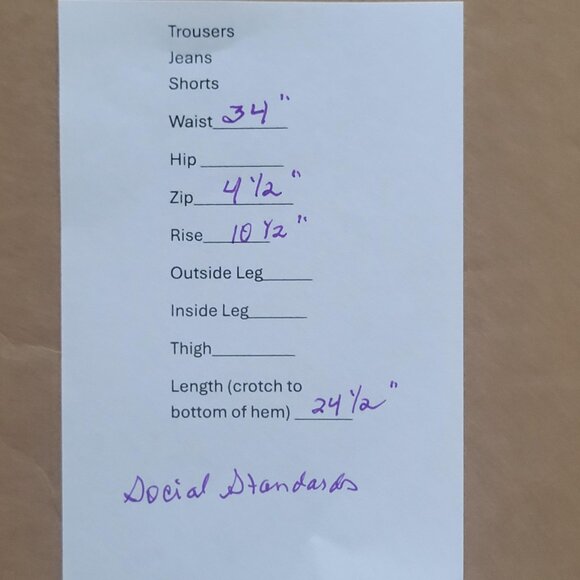 Trousers
Jeans
Shorts
Waist 34"
Hip
Zip 4 1/2"
Rise 10 1/2"
Outside Leg
Inside Leg
Thigh
Length (crotch to
bottom of hem) 24 1/2"
Social Standards